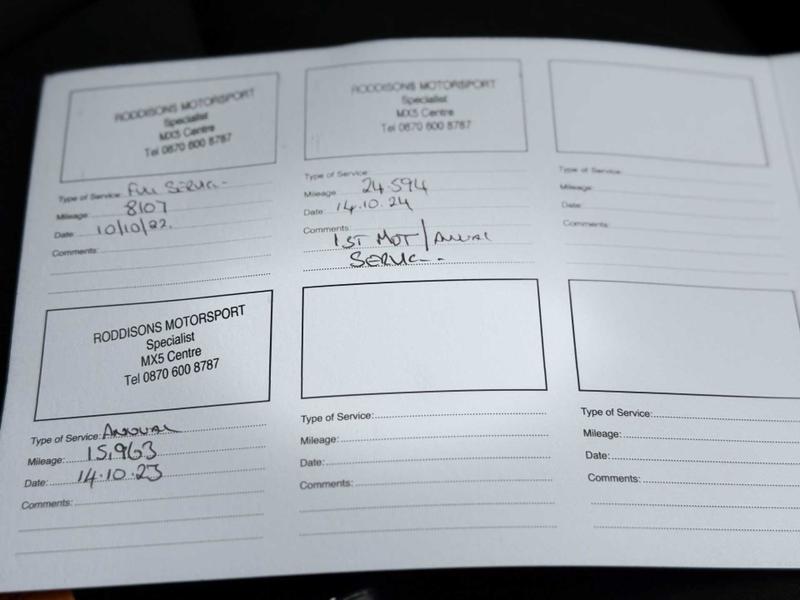 RODDISONS MOTORSPORT
Specialist
MX5 Centre
Tel 0870 600 8787
Type of Service: Full Service
Mileage: 8107
Date: 10/10/22.
Comments:
RODDISONS MOTORSPORT
Specialist
MX5 Centre
Tel 0870 600 8787
Type of Service:
Mileage: 24.594
Date: 14.10.24
Comments:
1ST MOT / Annual
Service
Type of Service:
Mileage:
Date:
Comments:
RODDISONS MOTORSPORT
Specialist
MX5 Centre
Tel 0870 600 8787
Type of Service: Annual
Mileage: 15,963
Date: 14.10.23
Comments:
Type of Service:
Mileage:
Date:
Comments:
Type of Service:
Mileage:
Date:
Comments: